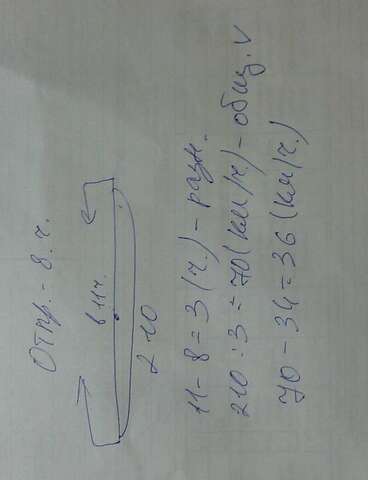 Отпр. - 8 ч.
в 11 ч.
210
11 - 8 = 3 (ч.) - разн.
210 : 3 = 70 (км/ч.) - общ. v
70 - 34 = 36 (км/ч.)